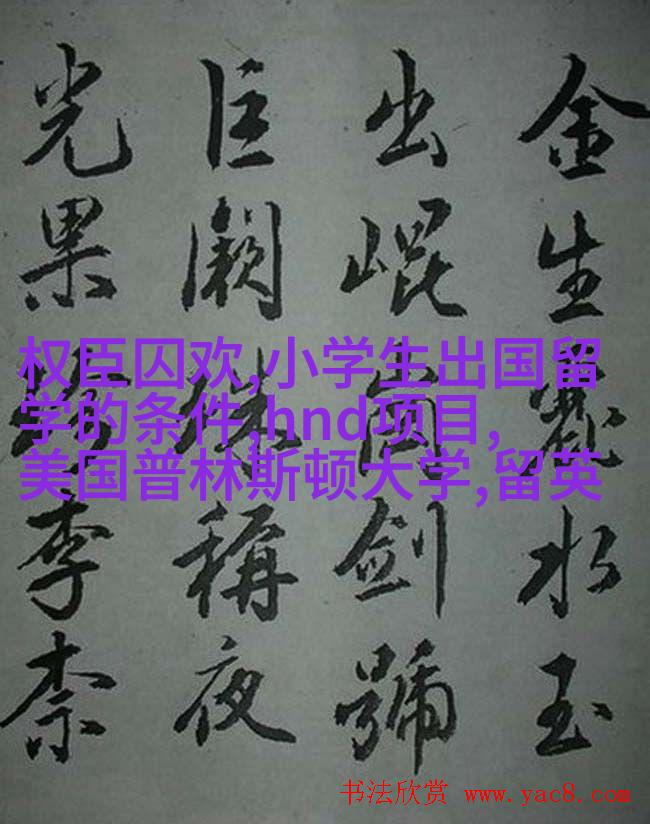 金生麗水玉
出崐崗劍號
巨闕珠稱夜
光果珍李柰
权臣囚欢,小学生出国留
学的条件,hnd项目,
美国普林斯顿大学,留英
书法欣赏 www.yac8.com